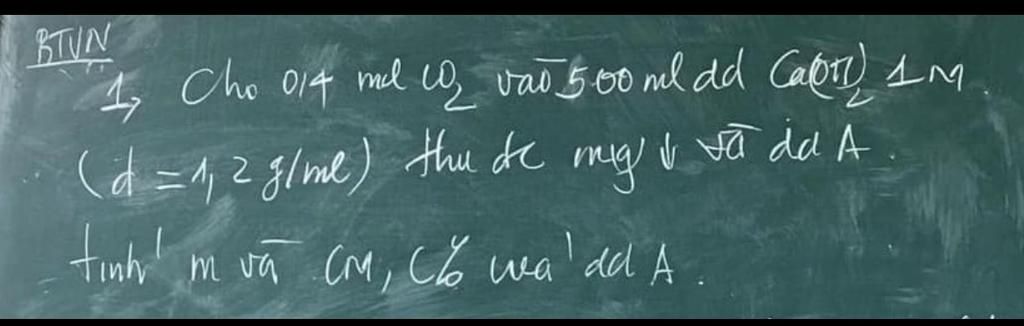 BTVN
1, Cho 0,4 mol CO2 vào 500 ml dd Ca(OH)2 1M
(d = 1,2 g/ml) thu đc m(g) ↓ và dd A.
tính m và CM, C% của dd A.